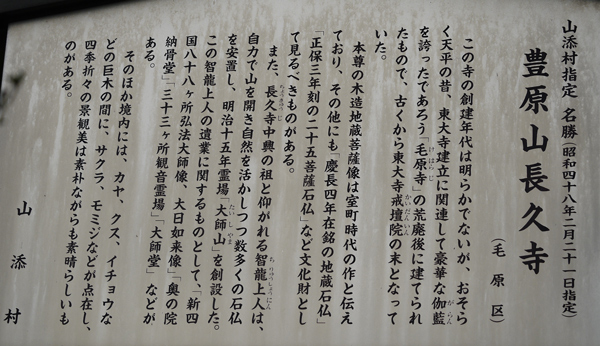 山添村指定 名勝(昭和四十八年二月二十一日指定)
豊原山長久寺
(毛原区)
この寺の創建年代は明らかでないが、おそら
く天平の昔、東大寺建立に関連して豪華な伽藍
がらん
を誇ったであろう「毛原寺」の荒廃後に建てられ
けはらじ
たもので、古くから東大寺戒壇院の末となって
かいだんいん
いた。
本尊の木造地蔵菩薩像は室町時代の作と伝え
ており、その他にも「慶長四年在銘の地蔵石仏」
「正保三年刻の二十五菩薩石仏」など文化財とし
て見るべきものがある。
また、長久寺中興の祖と仰がれる智龍上人は、
ちりゅうしょうにん
自力で山を開き自然を活かしつつ数多くの石仏
を安置し、明治十五年霊場「大師山」を創設した。
たいしやま
この智龍上人の遺業に関するものとして、「新四
国八十八ヶ所弘法大師像、大日如来像」「奥の院
納骨堂」「三十三ヶ所観音霊場」「大師堂」などが
ある。
そのほか境内には、カヤ、クス、イチョウな
どの巨木の間に、サクラ、モミジなどが点在し、
四季折々の景観美は素朴ながらも素晴らしいも
のがある。
山添村